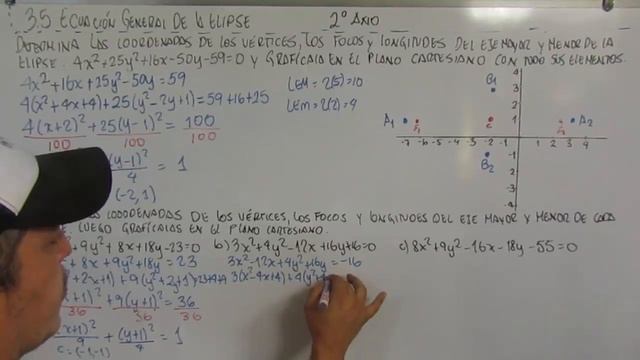 3.5 ECUACIÓN GENERAL DE LA ELIPSE 2° AÑO
DETERMINA LAS COORDENADAS DE LOS VÉRTICES, LOS FOCOS Y LONGITUDES DEL EJE MAYOR Y MENOR DE LA
ELIPSE. 4x²+25y²+16x-50y-59=0 Y GRAFÍCALA EN EL PLANO CARTESIANO CON TODO SUS ELEMENTOS.
4x²+16x+25y²-50y=59
4(x²+4x+4)+25(y²-2y+1)=59+16+25
4(x+2)²+25(y-1)²=100
100 100 100
(y-1)²
4 = 1
(-2,1)
LEM=2(5)=10
LEM=2(2)=4
B1
A1 F1 C F1 A2
B2
-7 -6 -5 -4 -3 -2 -1 1 2 3 4
4
3
2
1
-1
-2
-3
-4
COORDENADAS DE LOS VÉRTICES, LOS FOCOS Y LONGITUDES DEL EJE MAYOR Y MENOR DE CADA
LUEGO GRAFÍCALAS EN EL PLANO CARTESIANO.
+9y²+8x+18y-23=0 b) 3x²+4y²-12x+16y+16=0 c) 8x²+9y²-16x-18y-55=0
+8x+9y²+18y=23
+2x+1)+9(y²+2y+1)=23+4+9
+1)²+9(y+1)²=36
36 36
(x+1)²/9+(y+1)²/4=1
C=(-1,-1)
3x²-12x+4y²+16y=-16
3(x²-4x+4)+4(y²+